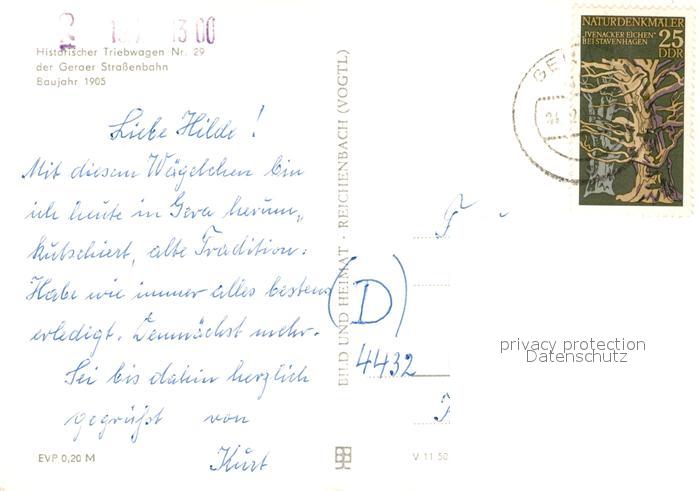 13 00
Historischer Triebwagen Nr. 29
der Geraer Straßenbahn
Baujahr 1905
Liebe Hilde!
Mit diesem Wägelchen bin
ich heute in Gera herum„
kutschiert, alte Tradition:
Habe wie immer alles bestens
erledigt. Demnächst mehr.
Sei bis dahin herzlich
gegrüßt von
Kurt
EVP 0,20 M
BILD UND HEIMAT · REICHENBACH (VOGTL)
V 11 50
(D)
4432
NATURDENKMÄLER
„IVENACKER EICHEN“
BEI STAVENHAGEN
25
DDR
privacy protection
Datenschutz